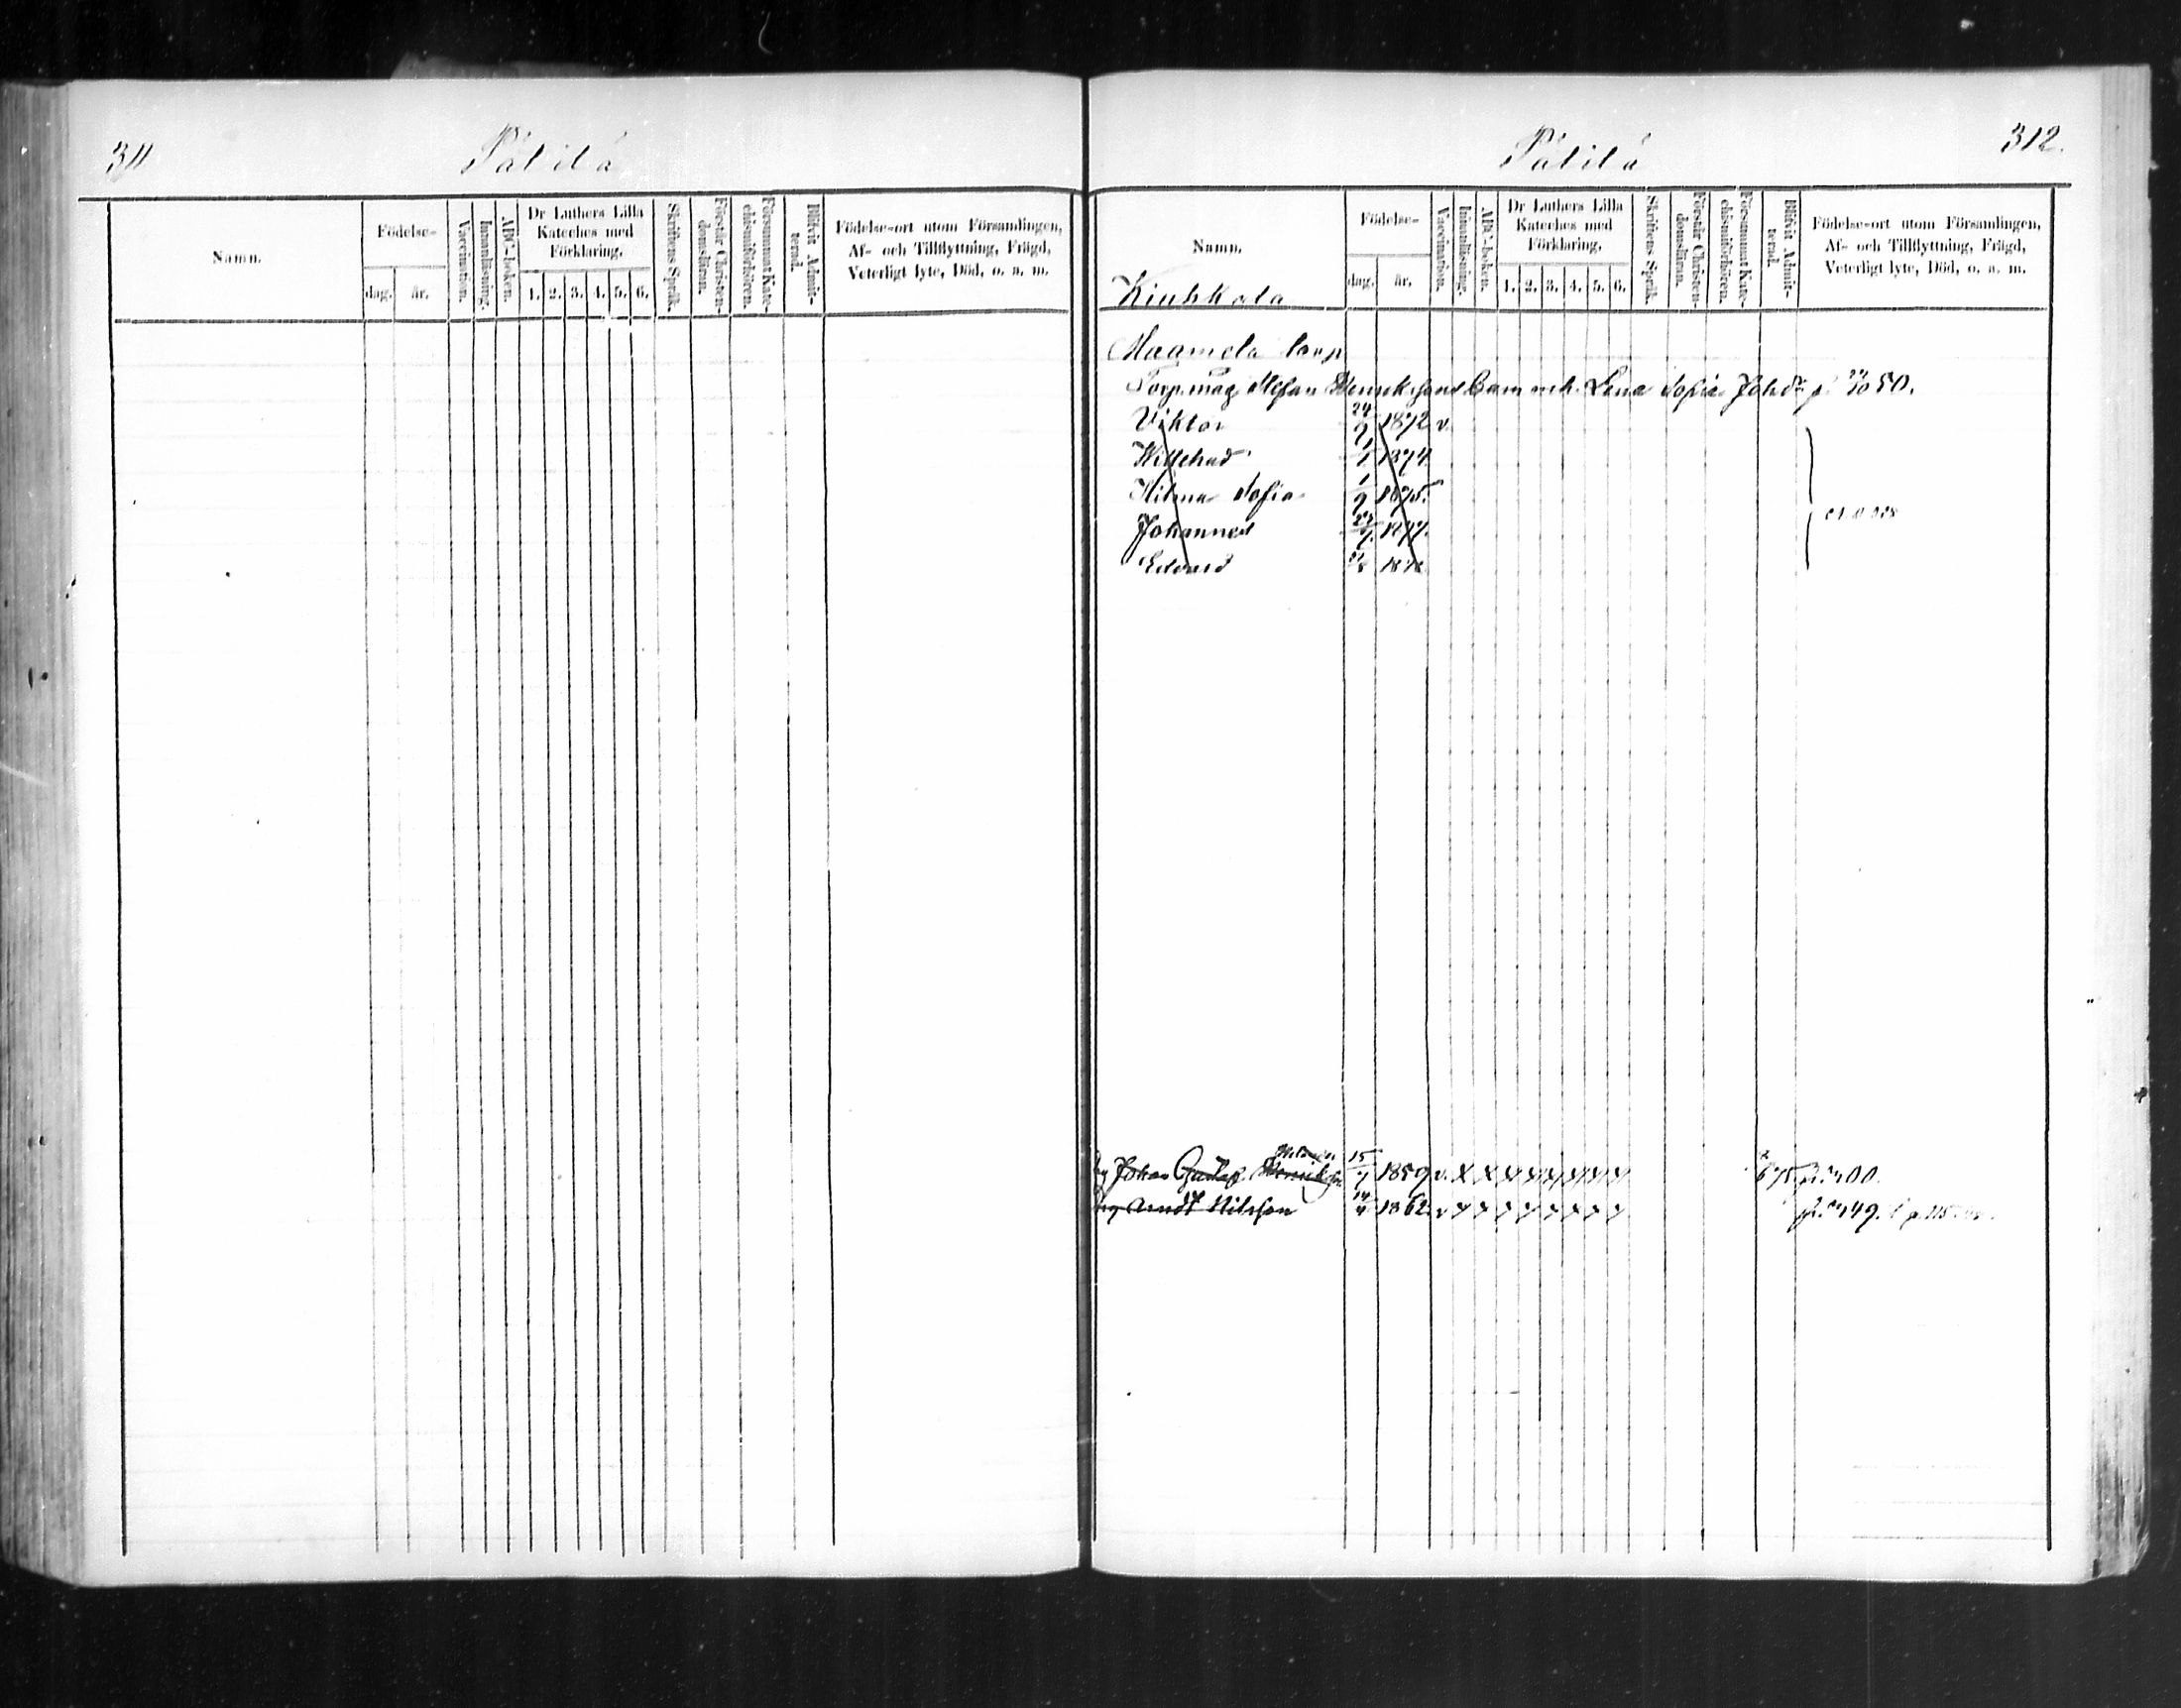 311
Pätilä
Namn.
Födelse-
dag.
år.
Vaccination.
Innanläsning.
ABC-boken.
Dr Luthers Lilla
Kateches med
Förklaring.
1. 2. 3. 4. 5. 6.
Skriftens Språk.
Förstår Christen-
domsläran.
Försummat Kate-
chismiförhören.
Blifvit Admit-
terad.
Födelse-ort utom Församlingen,
Af- och Tillflyttning, Frägd,
Veterligt lyte, Död, o. a. m.
312.
Pätilä
Namn.
Födelse-
dag.
år.
Vaccination.
Innanläsning.
ABC-boken.
Dr Luthers Lilla
Kateches med
Förklaring.
1. 2. 3. 4. 5. 6.
Skriftens Språk.
Förstår Christen-
domsläran.
Försummat Kate-
chismiförhören.
Blifvit Admit-
terad.
Födelse-ort utom Församlingen,
Af- och Tillflyttning, Frägd,
Veterligt lyte, Död, o. a. m.
Kiukkala
Maamela torp
Torp. måg Stefan Henrikssons barn Lena Sofia 50.
Viktor 24/9 1872 v.
Willehad 1/1 1874.
Hilma Sofia 1/9 1875.
Johannes 1877.
Edvard
Johan Gustaf Henriksson 15 1859 v. x x x x x x x x x
Arndt Nilsson 14 1862. v x x x x x x x x 449.